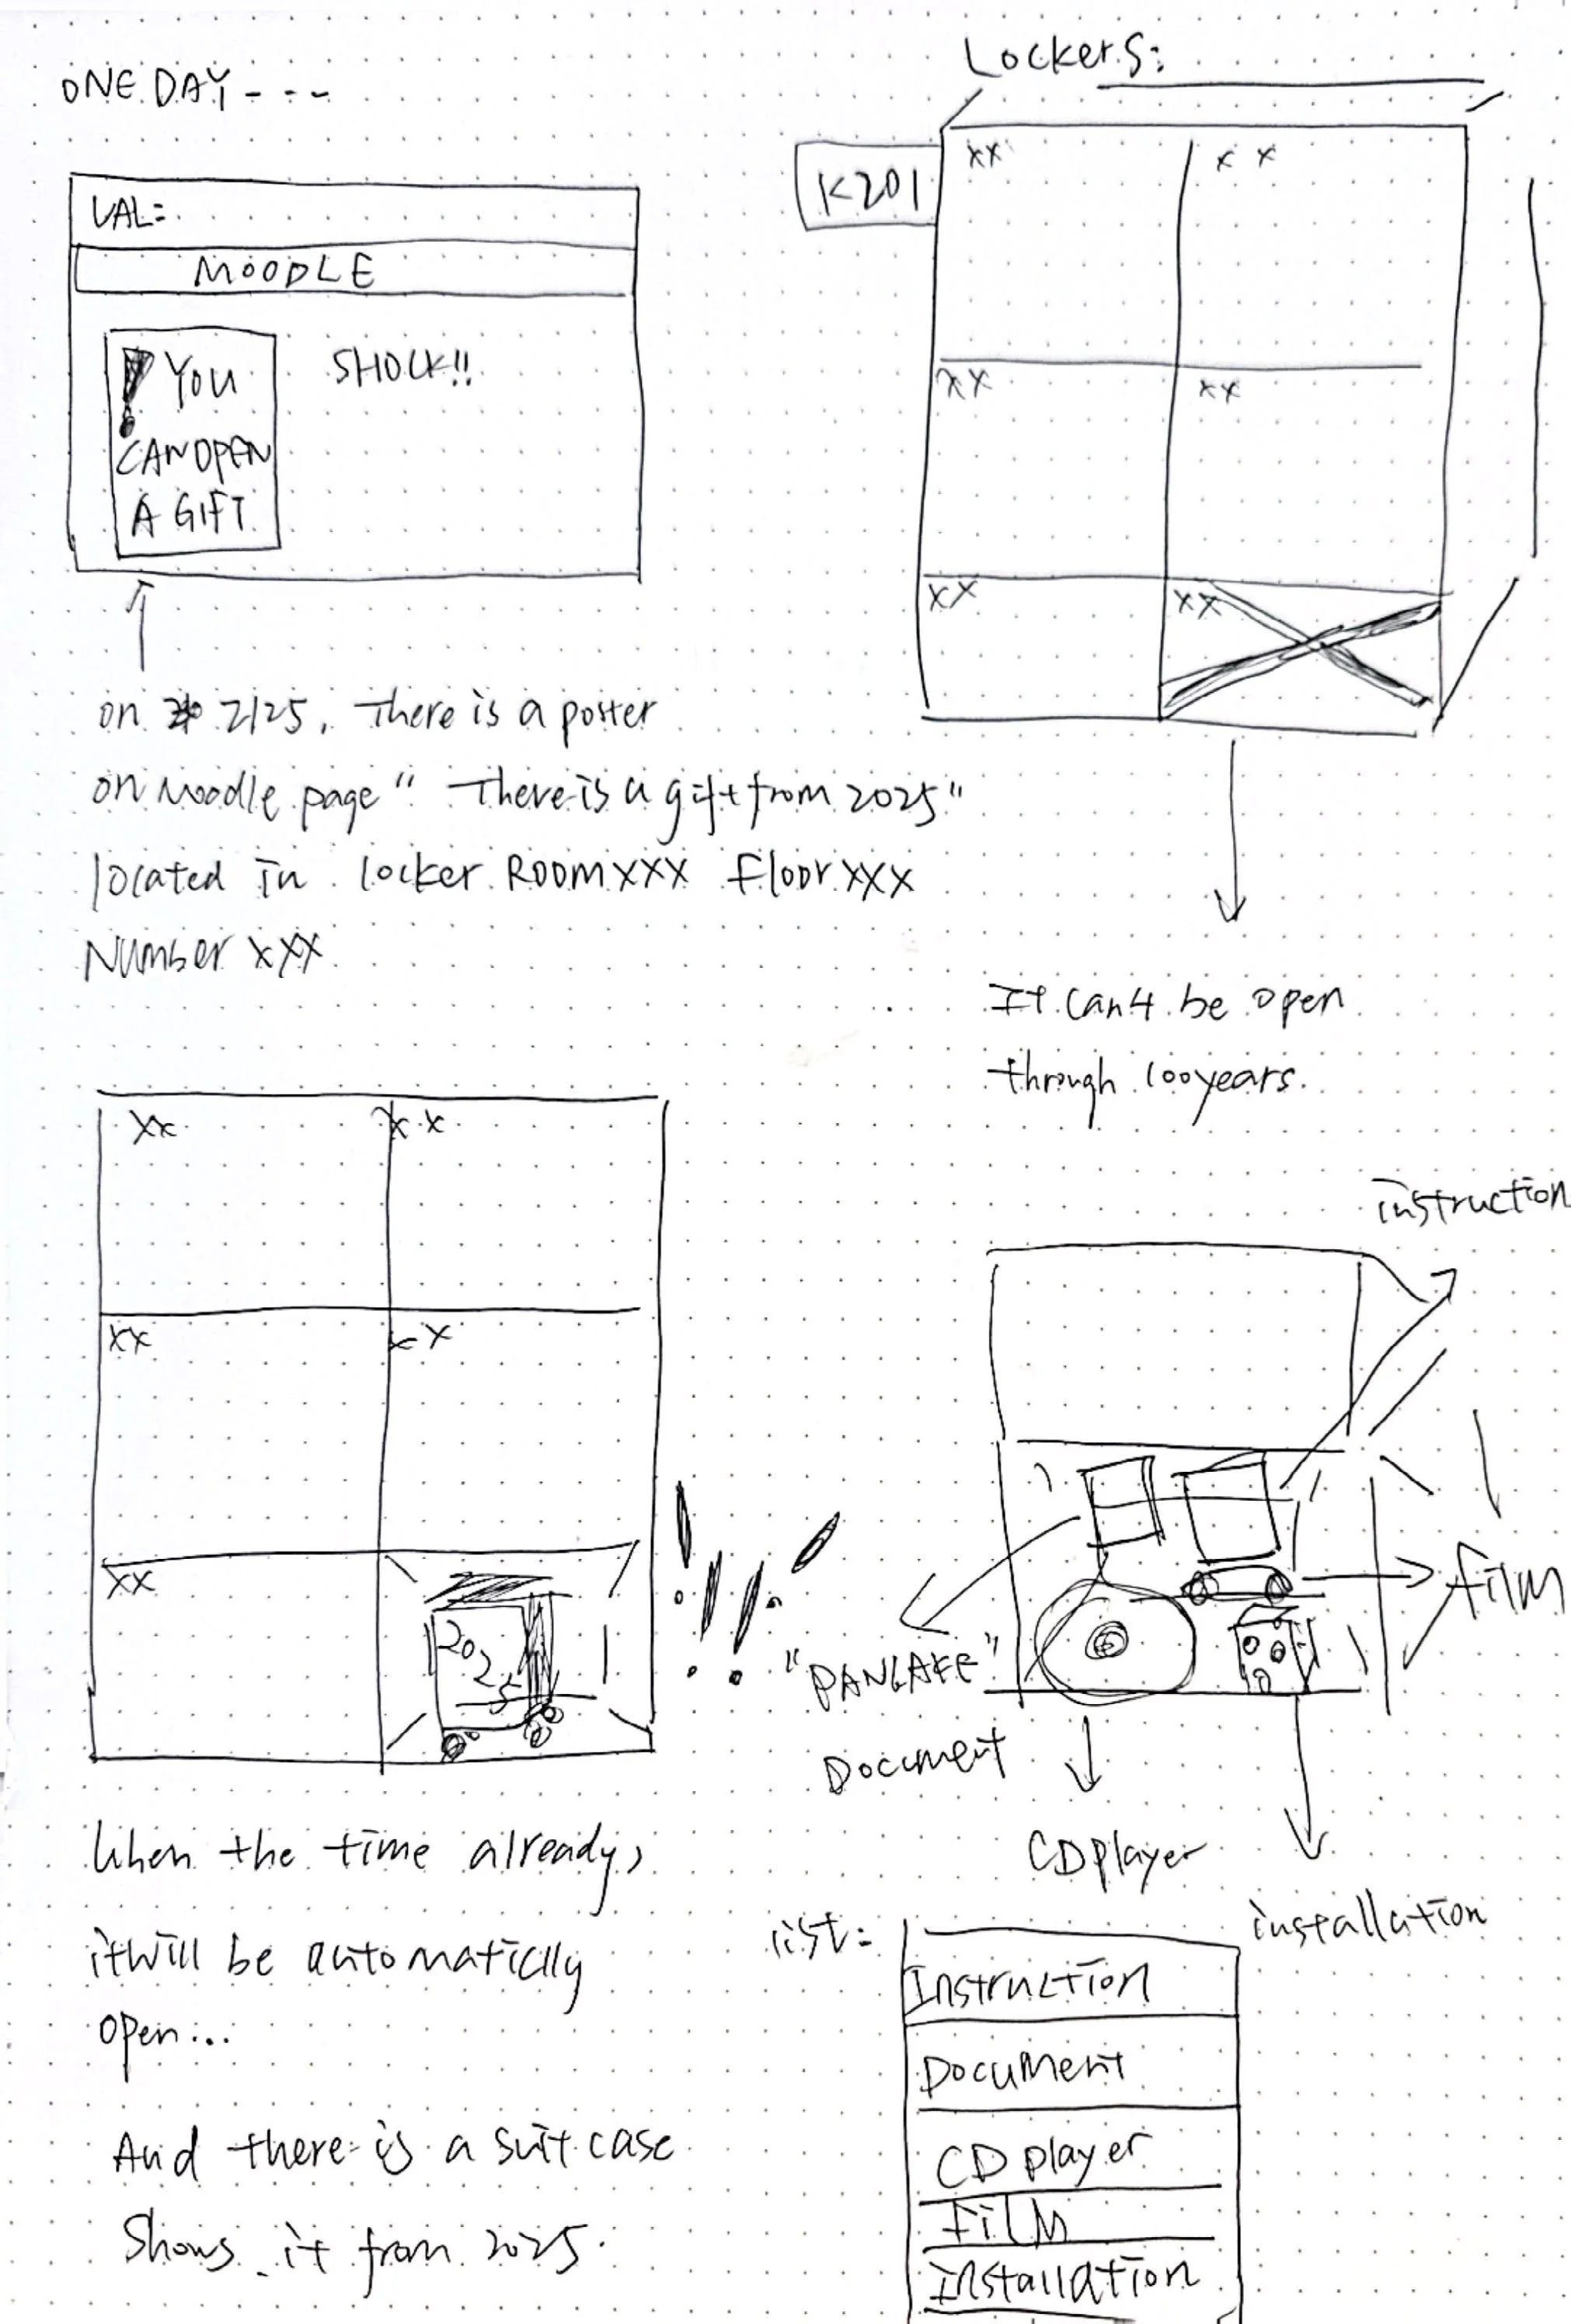 ONE DAY - - -
UAL:
MOODLE
! YOU
CAN OPEN
A GIFT
SHOCK!!
on 2125, There is a poster
on Moodle page " There is a gift from 2025"
located in locker Room XXX Floor XXX
Number XXX
Lockers:
K201
XX
XX
XX
XX
XX
XX
It can't be open
through 100 years.
XX
XX
XX
XX
XX
2025
!!!!
When the time already,
it will be automaticlly
open...
And there is a suitcase
Shows it from 2025.
instruction
film
"PANCAKE"
Document
CD player
installation
list:
Instruction
Document
CD player
Film
Installation